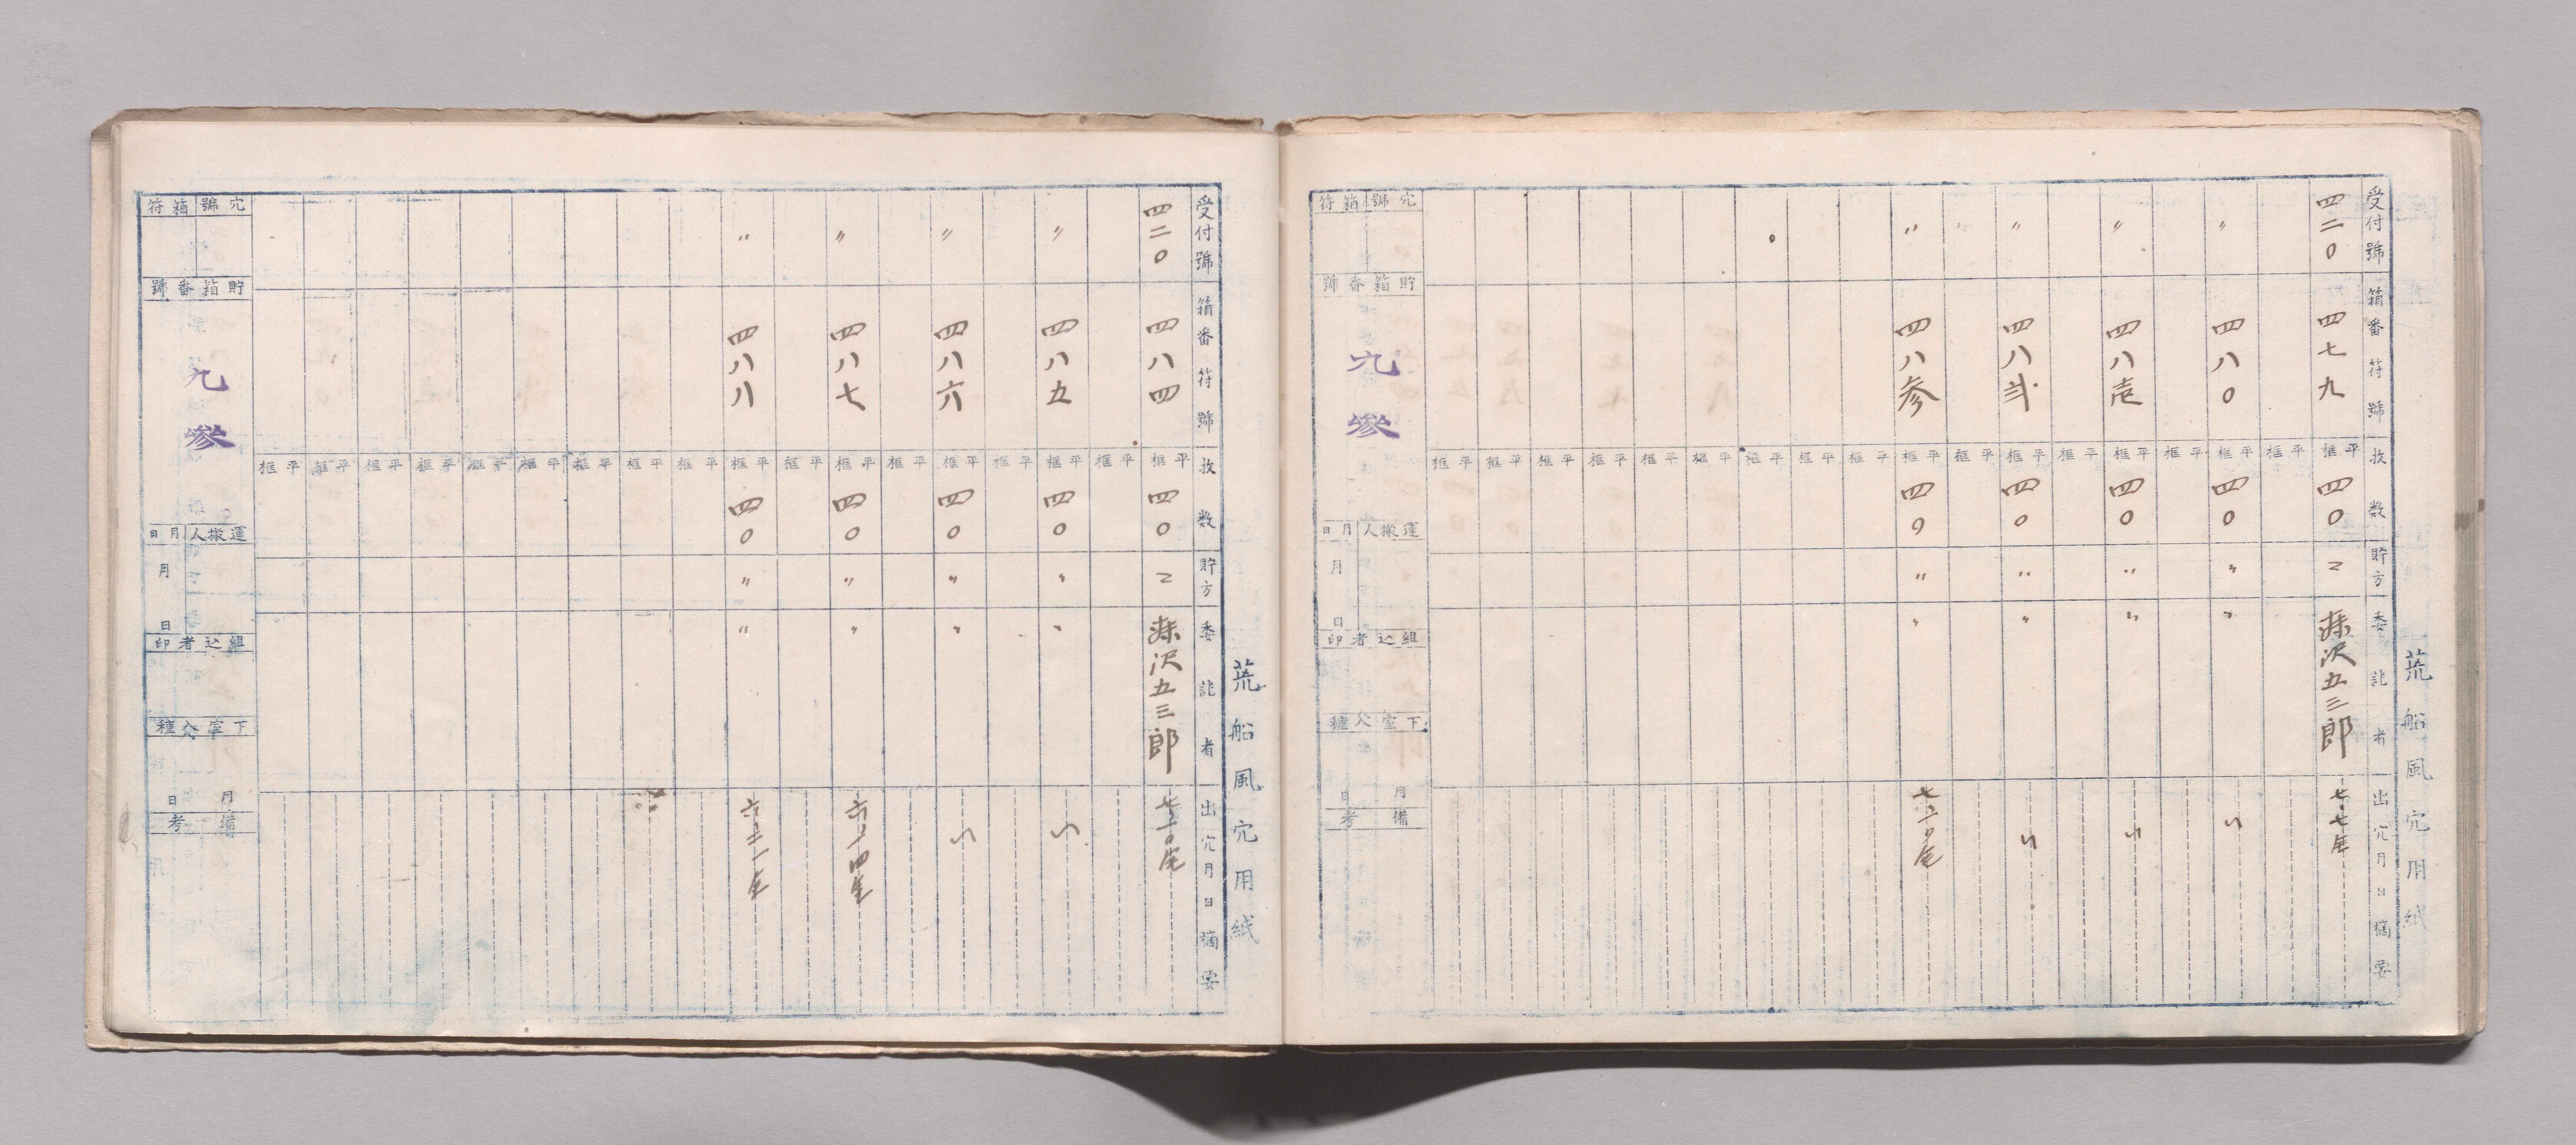 荒船風穴用紙
受付號
箱番符號
枚数
貯方
委託者
出穴月日摘要
四二〇
四七九
平框
四〇
二
沢五三郎
七、七
〃
四八〇
平框
四〇
〃
〃
〃
四八壱
平框
四〇
〃
〃
〃
四八弐
平框
四〇
〃
〃
〃
四八参
平框
四〇
〃
〃
穴號
箱符
貯箱番號
九参
運搬人
月日
月
日
組込者印
下室
月
日
備考
荒船風穴用紙
受付號
箱番符號
枚数
貯方
委託者
出穴月日摘要
四二〇
四八四
平框
四〇
二
沢五三郎
〃
四八五
平框
四〇
〃
〃
〃
四八六
平框
四〇
〃
〃
〃
四八七
平框
四〇
〃
〃
〃
四八八
平框
四〇
〃
〃
穴號
箱符
貯箱番號
九参
運搬人
月日
月
日
組込者印
下室
月
日
備考